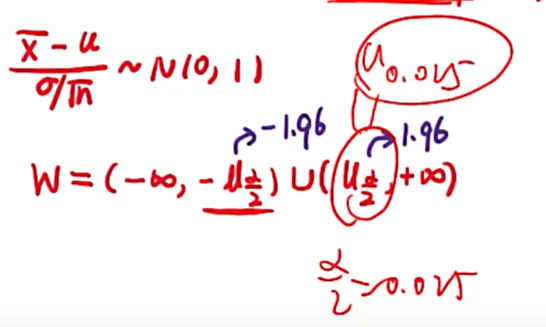 x̄ - u / σ/√n ~ N(0, 1)
u0.025
→ -1.96
→ 1.96
W = (-∞, -u α/2) ∪ (u α/2, +∞)
α/2 = 0.025